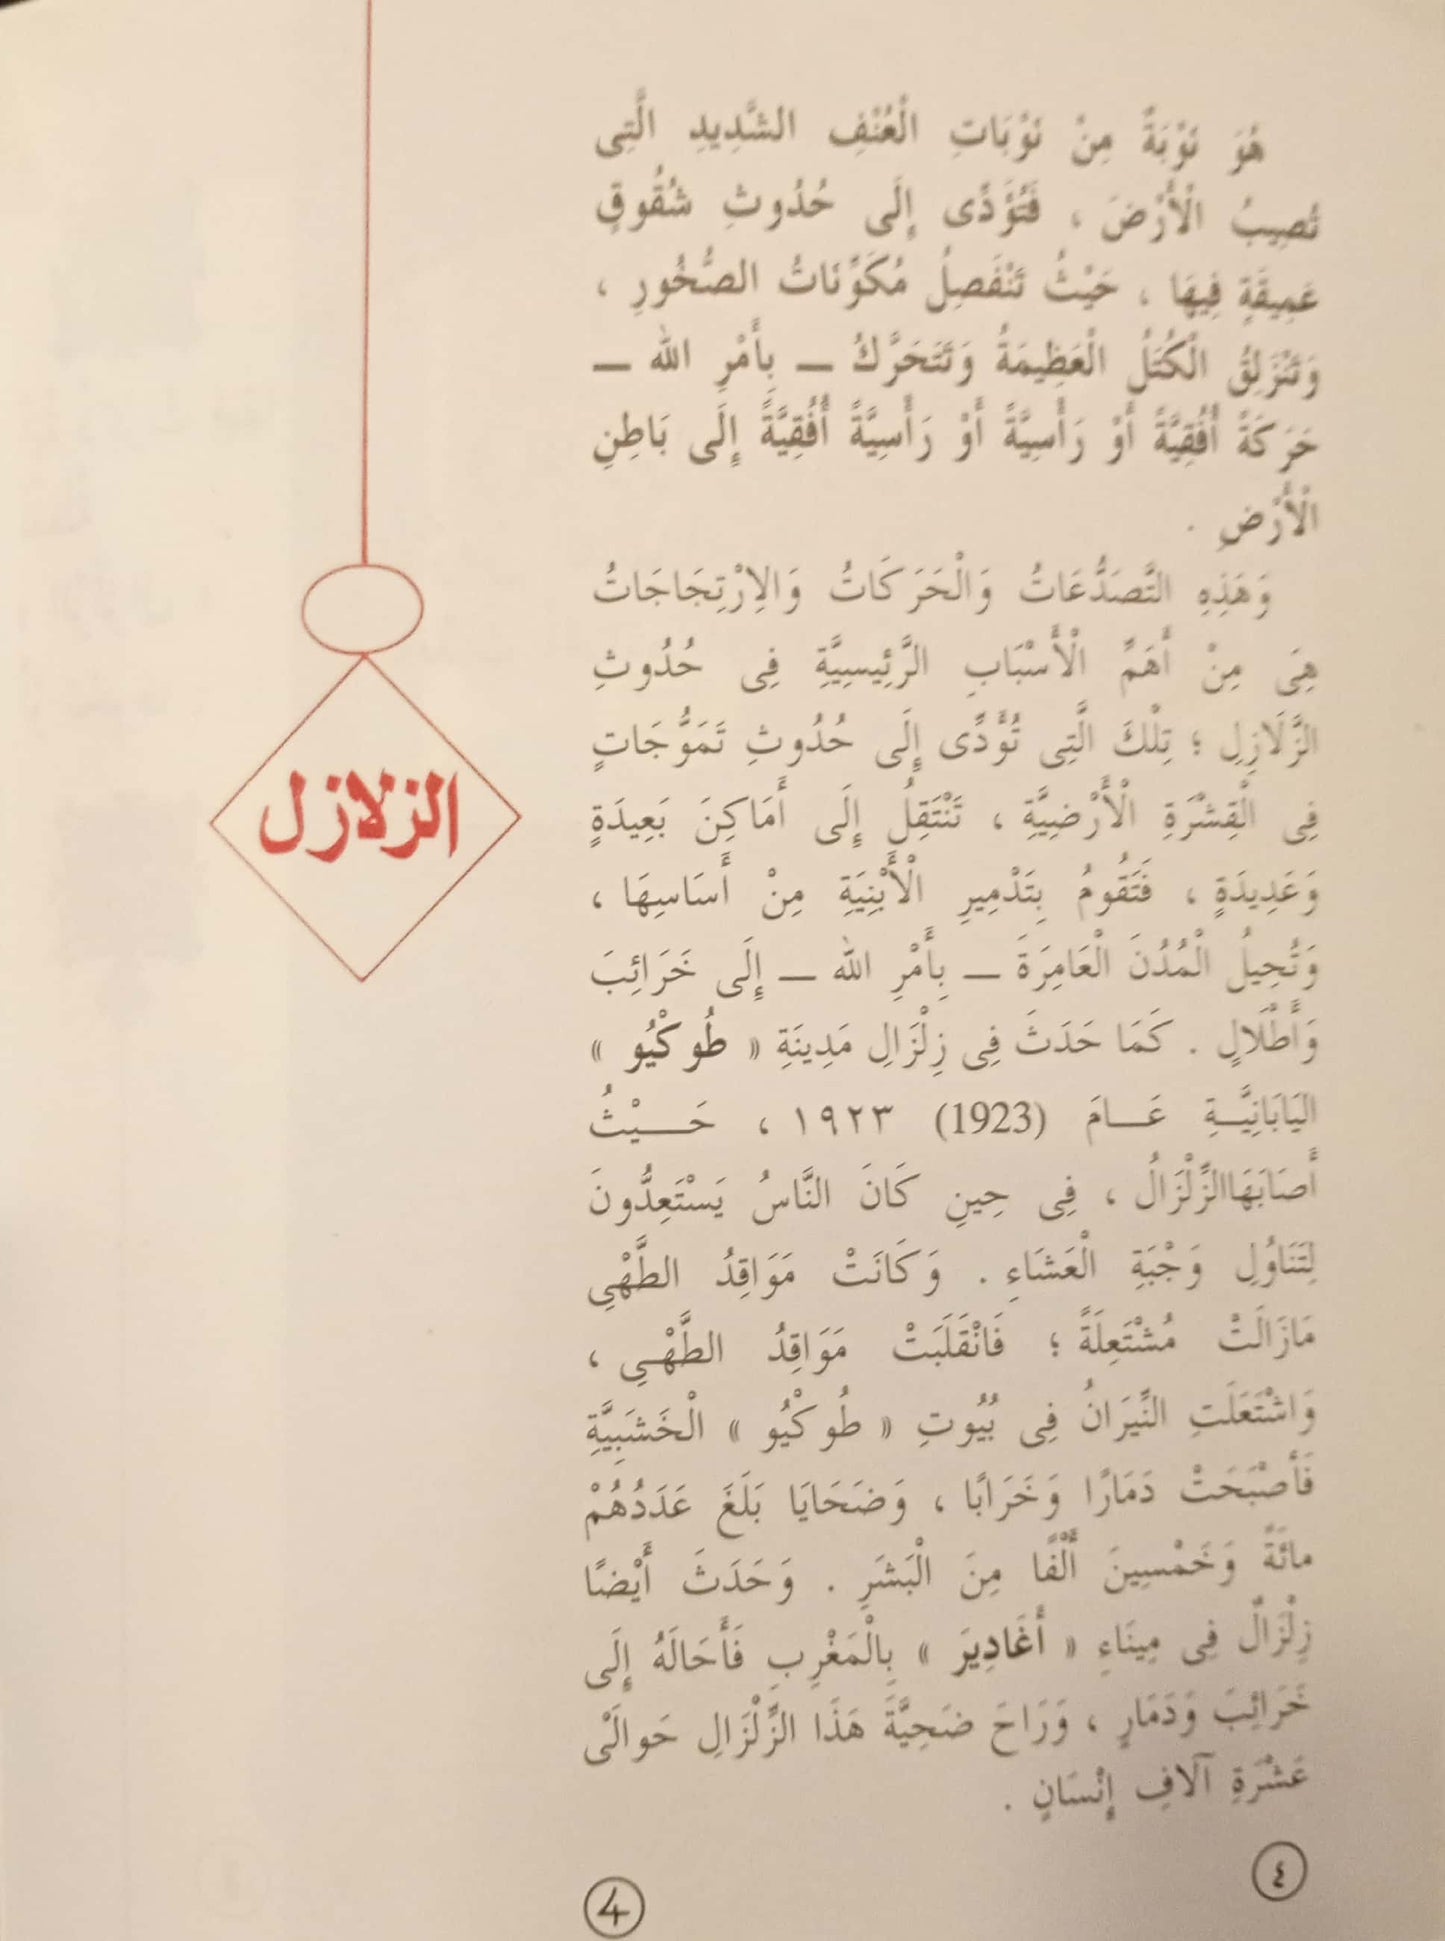 الزلازل
هُوَ نَوْبَةٌ مِنْ نَوْبَاتِ الْعُنْفِ الشَّدِيدِ الَّتِى
تُصِيبُ الْأَرْضَ ، فَتُؤَدِّى إِلَى حُدُوثِ شُقُوقٍ
عَمِيقَةٍ فِيهَا ، حَيْثُ تَنْفَصِلُ مُكَوِّنَاتُ الصُّخُورِ ،
وَتَنْزَلِقُ الْكُتَلُ الْعَظِيمَةُ وَتَتَحَرَّكُ — بِأَمْرِ الله —
حَرَكَةً أُفُقِيَّةً أَوْ رَأْسِيَّةً أَوْ رَأْسِيَّةً أُفُقِيَّةً إِلَى بَاطِنِ
الْأَرْضِ .
وَهَذِهِ التَّصَدُّعَاتُ وَالْحَرَكَاتُ وَالِارْتِجَاجَاتُ
هِىَ مِنْ أَهَمِّ الْأَسْبَابِ الرَّئِيسِيَّةِ فِى حُدُوثِ
الزَّلَازِلِ ؛ تِلْكَ الَّتِى تُؤَدِّى إِلَى حُدُوثِ تَمَوُّجَاتٍ
فِى الْقِشْرَةِ الْأَرْضِيَّةِ ، تَنْتَقِلُ إِلَى أَمَاكِنَ بَعِيدَةٍ
وَعَدِيدَةٍ ، فَتَقُومُ بِتَدْمِيرِ الْأَبْنِيَةِ مِنْ أَسَاسِهَا ،
وَتُحِيلُ الْمُدُنَ الْعَامِرَةَ — بِأَمْرِ الله — إِلَى خَرَائِبَ
وَأَطْلَالٍ . كَمَا حَدَثَ فِى زِلْزَالِ مَدِينَةِ « طُوكْيُو »
اليَابَانِيَّـةِ عَـــامَ (1923) ١٩٢٣ ، حَـــيْثُ
أَصَابَهَاالزِّلْزَالُ ، فِى حِينِ كَانَ النَّاسُ يَسْتَعِدُّونَ
لِتَنَاوُلِ وَجْبَةِ الْعَشَاءِ . وَكَانَتْ مَوَاقِدُ الطَّهْىِ
مَازَالَتْ مُشْتَعِلَةً ؛ فَانْقَلَبَتْ مَوَاقِدُ الطَّهْـىِ ،
وَاشْتَعَلَتِ النِّيرَانُ فِى بُيُوتِ « طُوكْيُو » الْخَشَبِيَّةِ
فَأَصْبَحَتْ دَمَارًا وَخَرَابًا ، وَضَحَايَا بَلَغَ عَدَدُهُمْ
مائَةً وَخَمْسِينَ أَلْفًا مِنَ الْبَشَرِ . وَحَدَثَ أَيْضًا
زِلْزَالٌ فِى مِينَاءِ « أَغَادِيرَ » بِالْمَغْرِبِ فَأَحَالَهُ إِلَى
خَرَائِبَ وَدَمَارٍ ، وَرَاحَ ضَحِيَّةَ هَذَا الزِّلْزَالِ حَوالَىْ
عَشْرَةِ آلَافِ إِنْسَانٍ .
٤
4